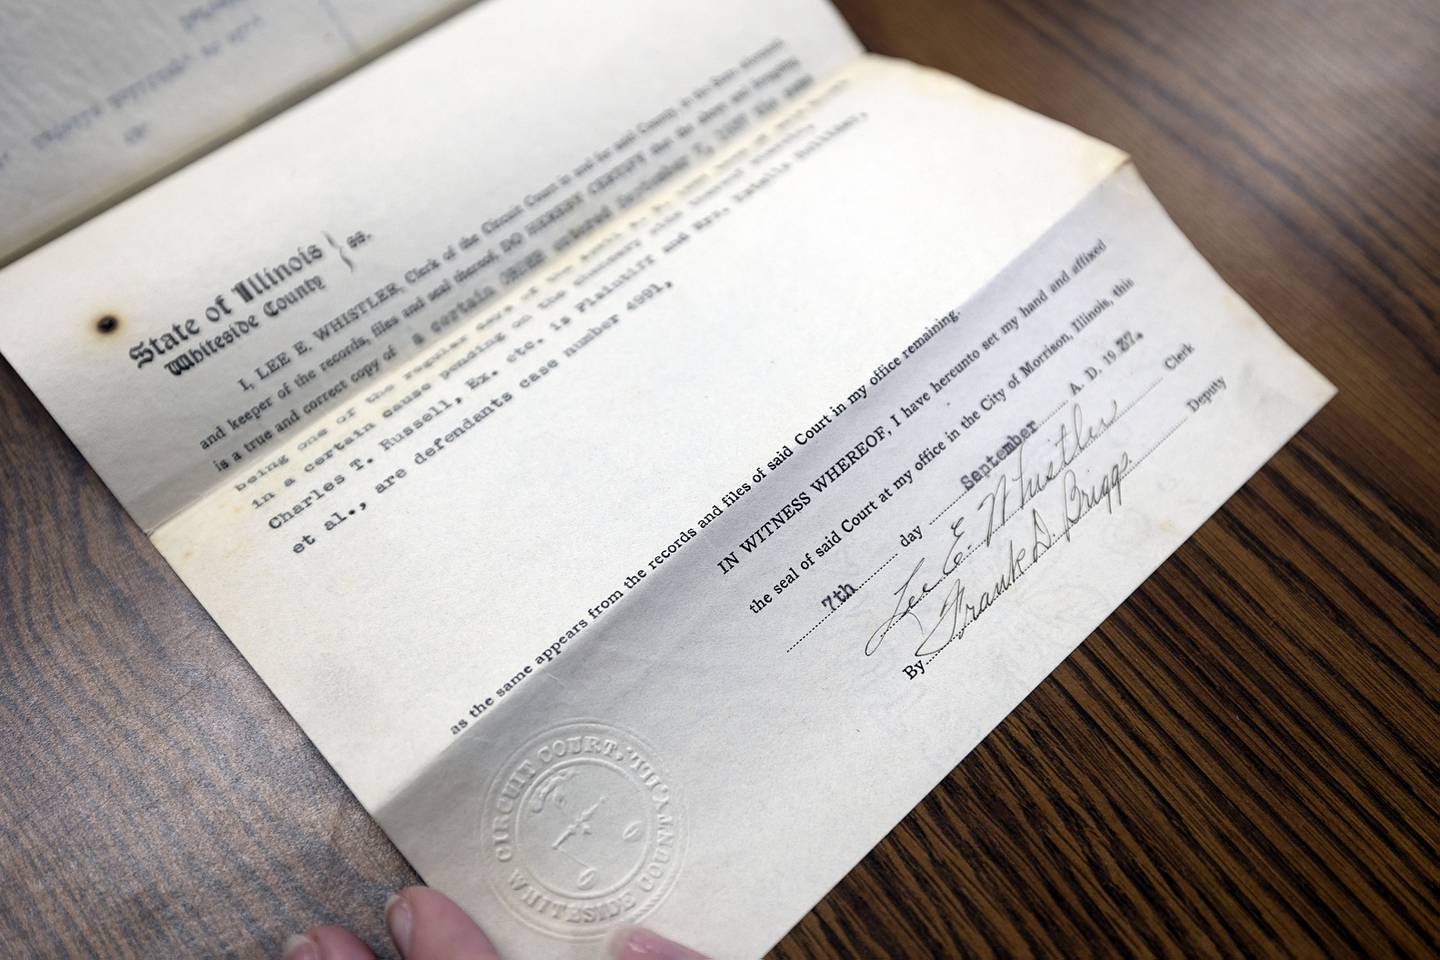 State of Illinois } ss.
Whiteside County
I, LEE E. WHISTLER, Clerk of the Circuit Court in and for said County, in the State aforesaid
and keeper of the records, files and seal thereof, DO HEREBY CERTIFY the above and foregoing
is a true and correct copy of a certain ORDER entered September 7, the same
being one of the regular days of the
in a certain cause pending on the chancery side thereof wherein
Charles T. Russell, Ex. etc. is Plaintiff and Mrs.
et al., are defendants case number 4991,
as the same appears from the records and files of said Court in my office remaining.
IN WITNESS WHEREOF, I have hereunto set my hand and affixed
the seal of said Court at my office in the City of Morrison, Illinois, this
7th day September A. D. 19
Lee E. Whistler Clerk
By Frank D. Briggs. Deputy
CIRCUIT COURT,
WHITESIDE COUNTY